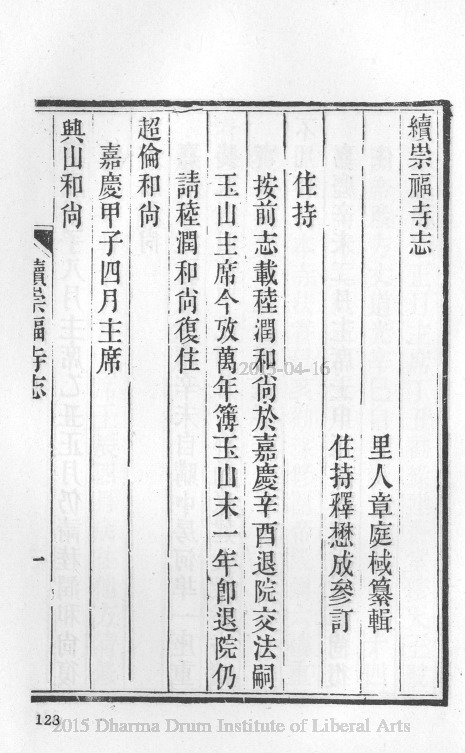 續崇福寺志
里人章庭棫纂輯
住持釋懋成參訂
住持
按前志載䅖潤和尙於嘉慶辛酉退院交法嗣
玉山主席今攷萬年簿玉山末一年卽退院仍
請䅖潤和尙復住
超倫和尙
嘉慶甲子四月主席
興山和尙
續崇福寺志
一
2015-04-16
123
2015 Dharma Drum Institute of Liberal Arts